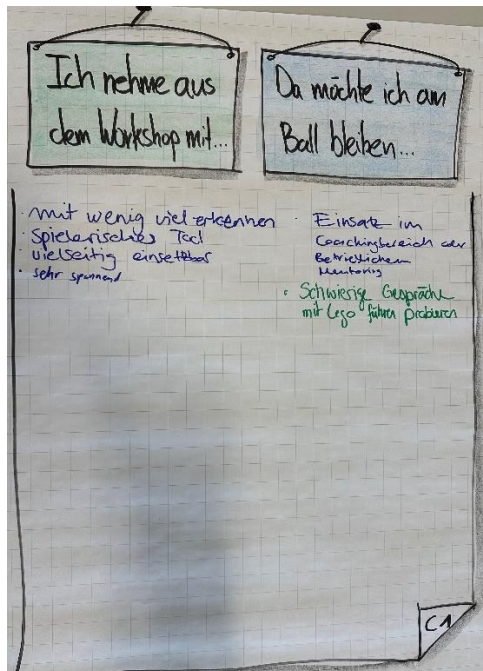 Ich nehme aus
dem Workshop mit...
Da möchte ich am
Ball bleiben...
· mit wenig viel erkennen
· Spielerisches Tool
· vielseitig einsetzbar
· sehr spannend
· Einsatz im
Coachingbereich oder
Betrieblichem
Mentoring
· Schwierige Gespräche
mit Lego führen probieren
C1